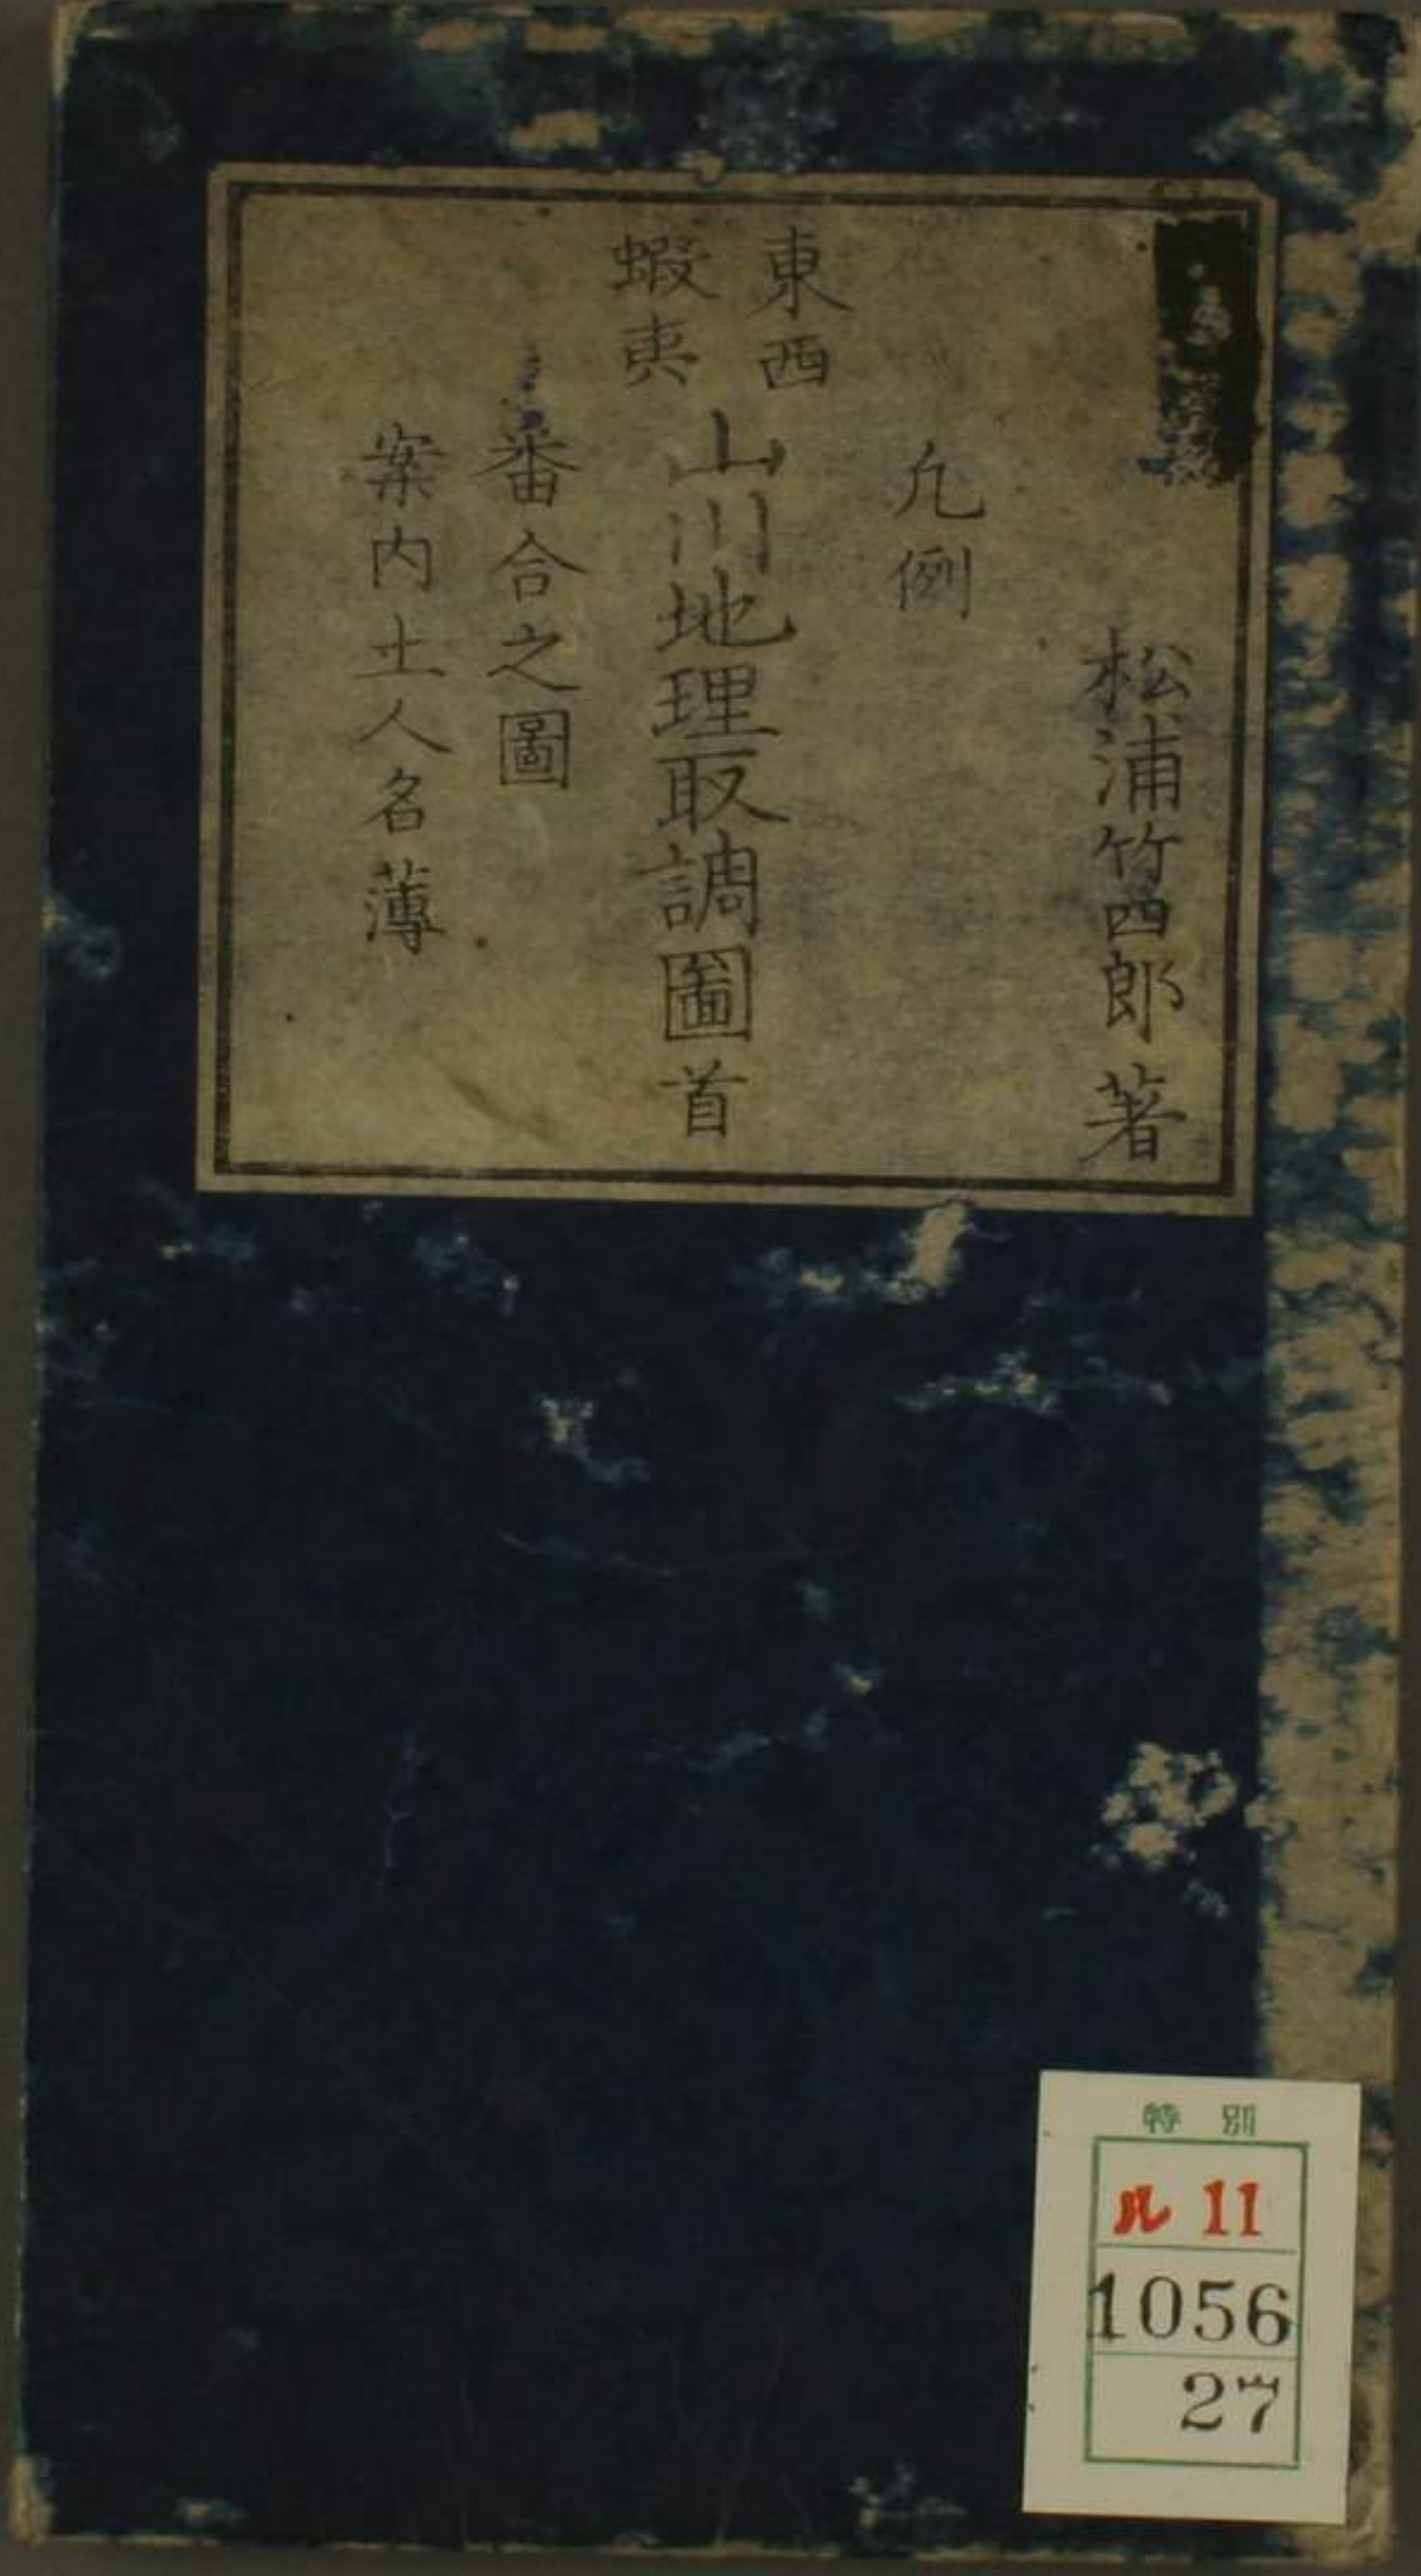 松浦竹四郎著
凢例
東西
蝦夷
山川地理取調圖首
番合之圖
案内土人名薄
特別
ル 11
1056
27